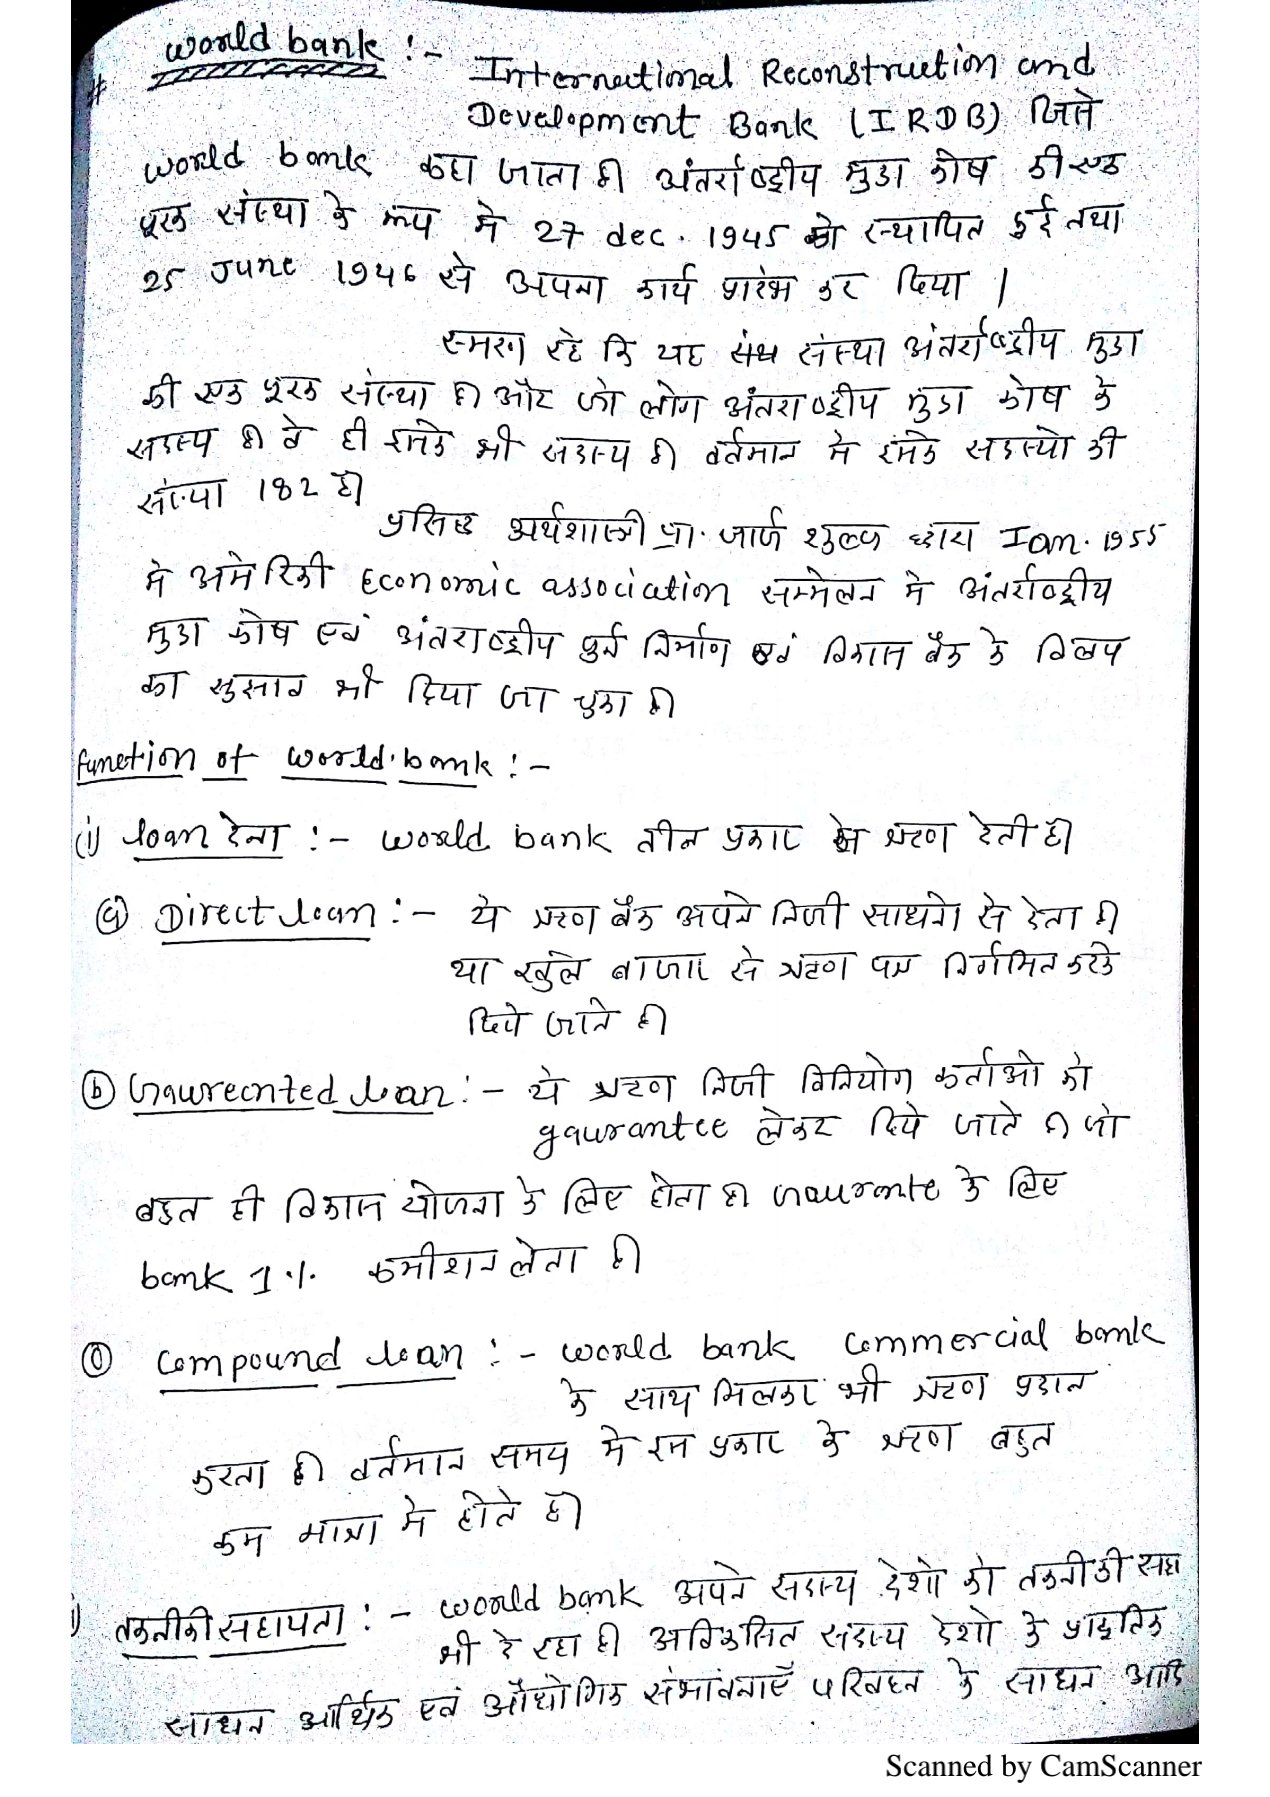 # World bank :- International Reconstruction and
Development Bank (IRDB) जिसे
world bank कहा जाता है। अंतर्राष्ट्रीय मुद्रा कोष की एक
पूरक संस्था के रूप मे 27 dec. 1945 को स्थापित हुई तथा
25 June 1946 से अपना कार्य प्रारंभ कर दिया।
स्मरण रहे कि यह संस्था अंतर्राष्ट्रीय मुद्रा
की एक पूरक संस्था है। और जो लोग अंतराष्ट्रीय मुद्रा कोष के
सदस्य है। वे ही इसके भी सदस्य है। वर्तमान मे इसके सदस्यो की
संख्या 182 है।
प्रसिद्ध अर्थशास्त्री प्रा. जार्ज शुल्क द्वारा Jan. 1955
मे अमेरिकी Economic association सम्मेलन मे अंतर्राष्ट्रीय
मुद्रा कोष एवं अंतराष्ट्रीय पुर्न निर्माण एवं विकास बैंक के विलय
का सुझाव भी दिया जा चुका है।
function of world.bank :-
(i) loan देना :- world bank तीन प्रकार से ऋण देती है।
(a) Direct loan :- ये ऋण बैंक अपने निजी साधनो से देता है।
या खुले बाजार से ऋण पत्र निर्गमित करके
दिये जाते है।
(b) Gaureented loan :- ये ऋण निजी विनियोग कर्ताओ को
gaurantee लेकर दिये जाते है। जो
बहुत ही विकास योजना के लिए होता है। Gaurante के लिए
bank 1% कमीशन लेता है।
(c) Compound loan :- World bank Commercial bank
के साथ मिलकर भी ऋण प्रदान
करता है। वर्तमान समय मे इस प्रकार के ऋण बहुत
कम मात्रा मे होते है।
तकनीकी सहायता :- World bank अपने सदस्य देशो को तकनीकी सहा
भी दे रहा है। अविकसित सदस्य देशो के प्राकृतिक
साधन आर्थिक एवं औद्योगिक संभावनाएँ परिवहन के साधन आदि
Scanned by CamScanner